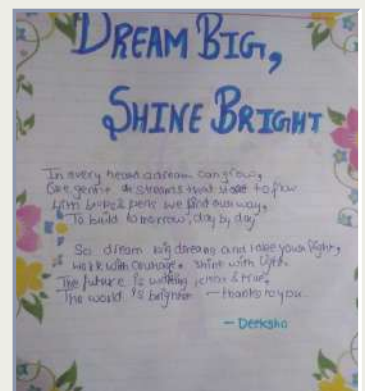 DREAM BIG,
SHINE BRIGHT
In every heart a dream can grow,
Like gentle streams that start to flow
With books & pens we find our way,
To build tomorrow, day by day.
So dream big dreams and take your flight,
Work with courage, shine with light.
The future is waiting, clear & true,
The world is brighter — thanks to you.
— Deeksha